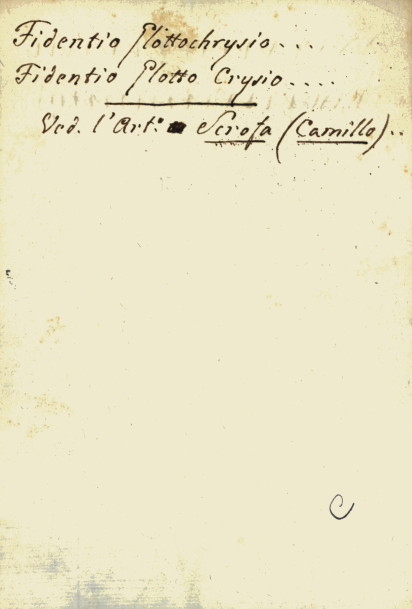 Fidentio Glottochrysio....
Fidentio Glotto Crysio....
Ved. l'Art.o Scrofa (Camillo)..
C